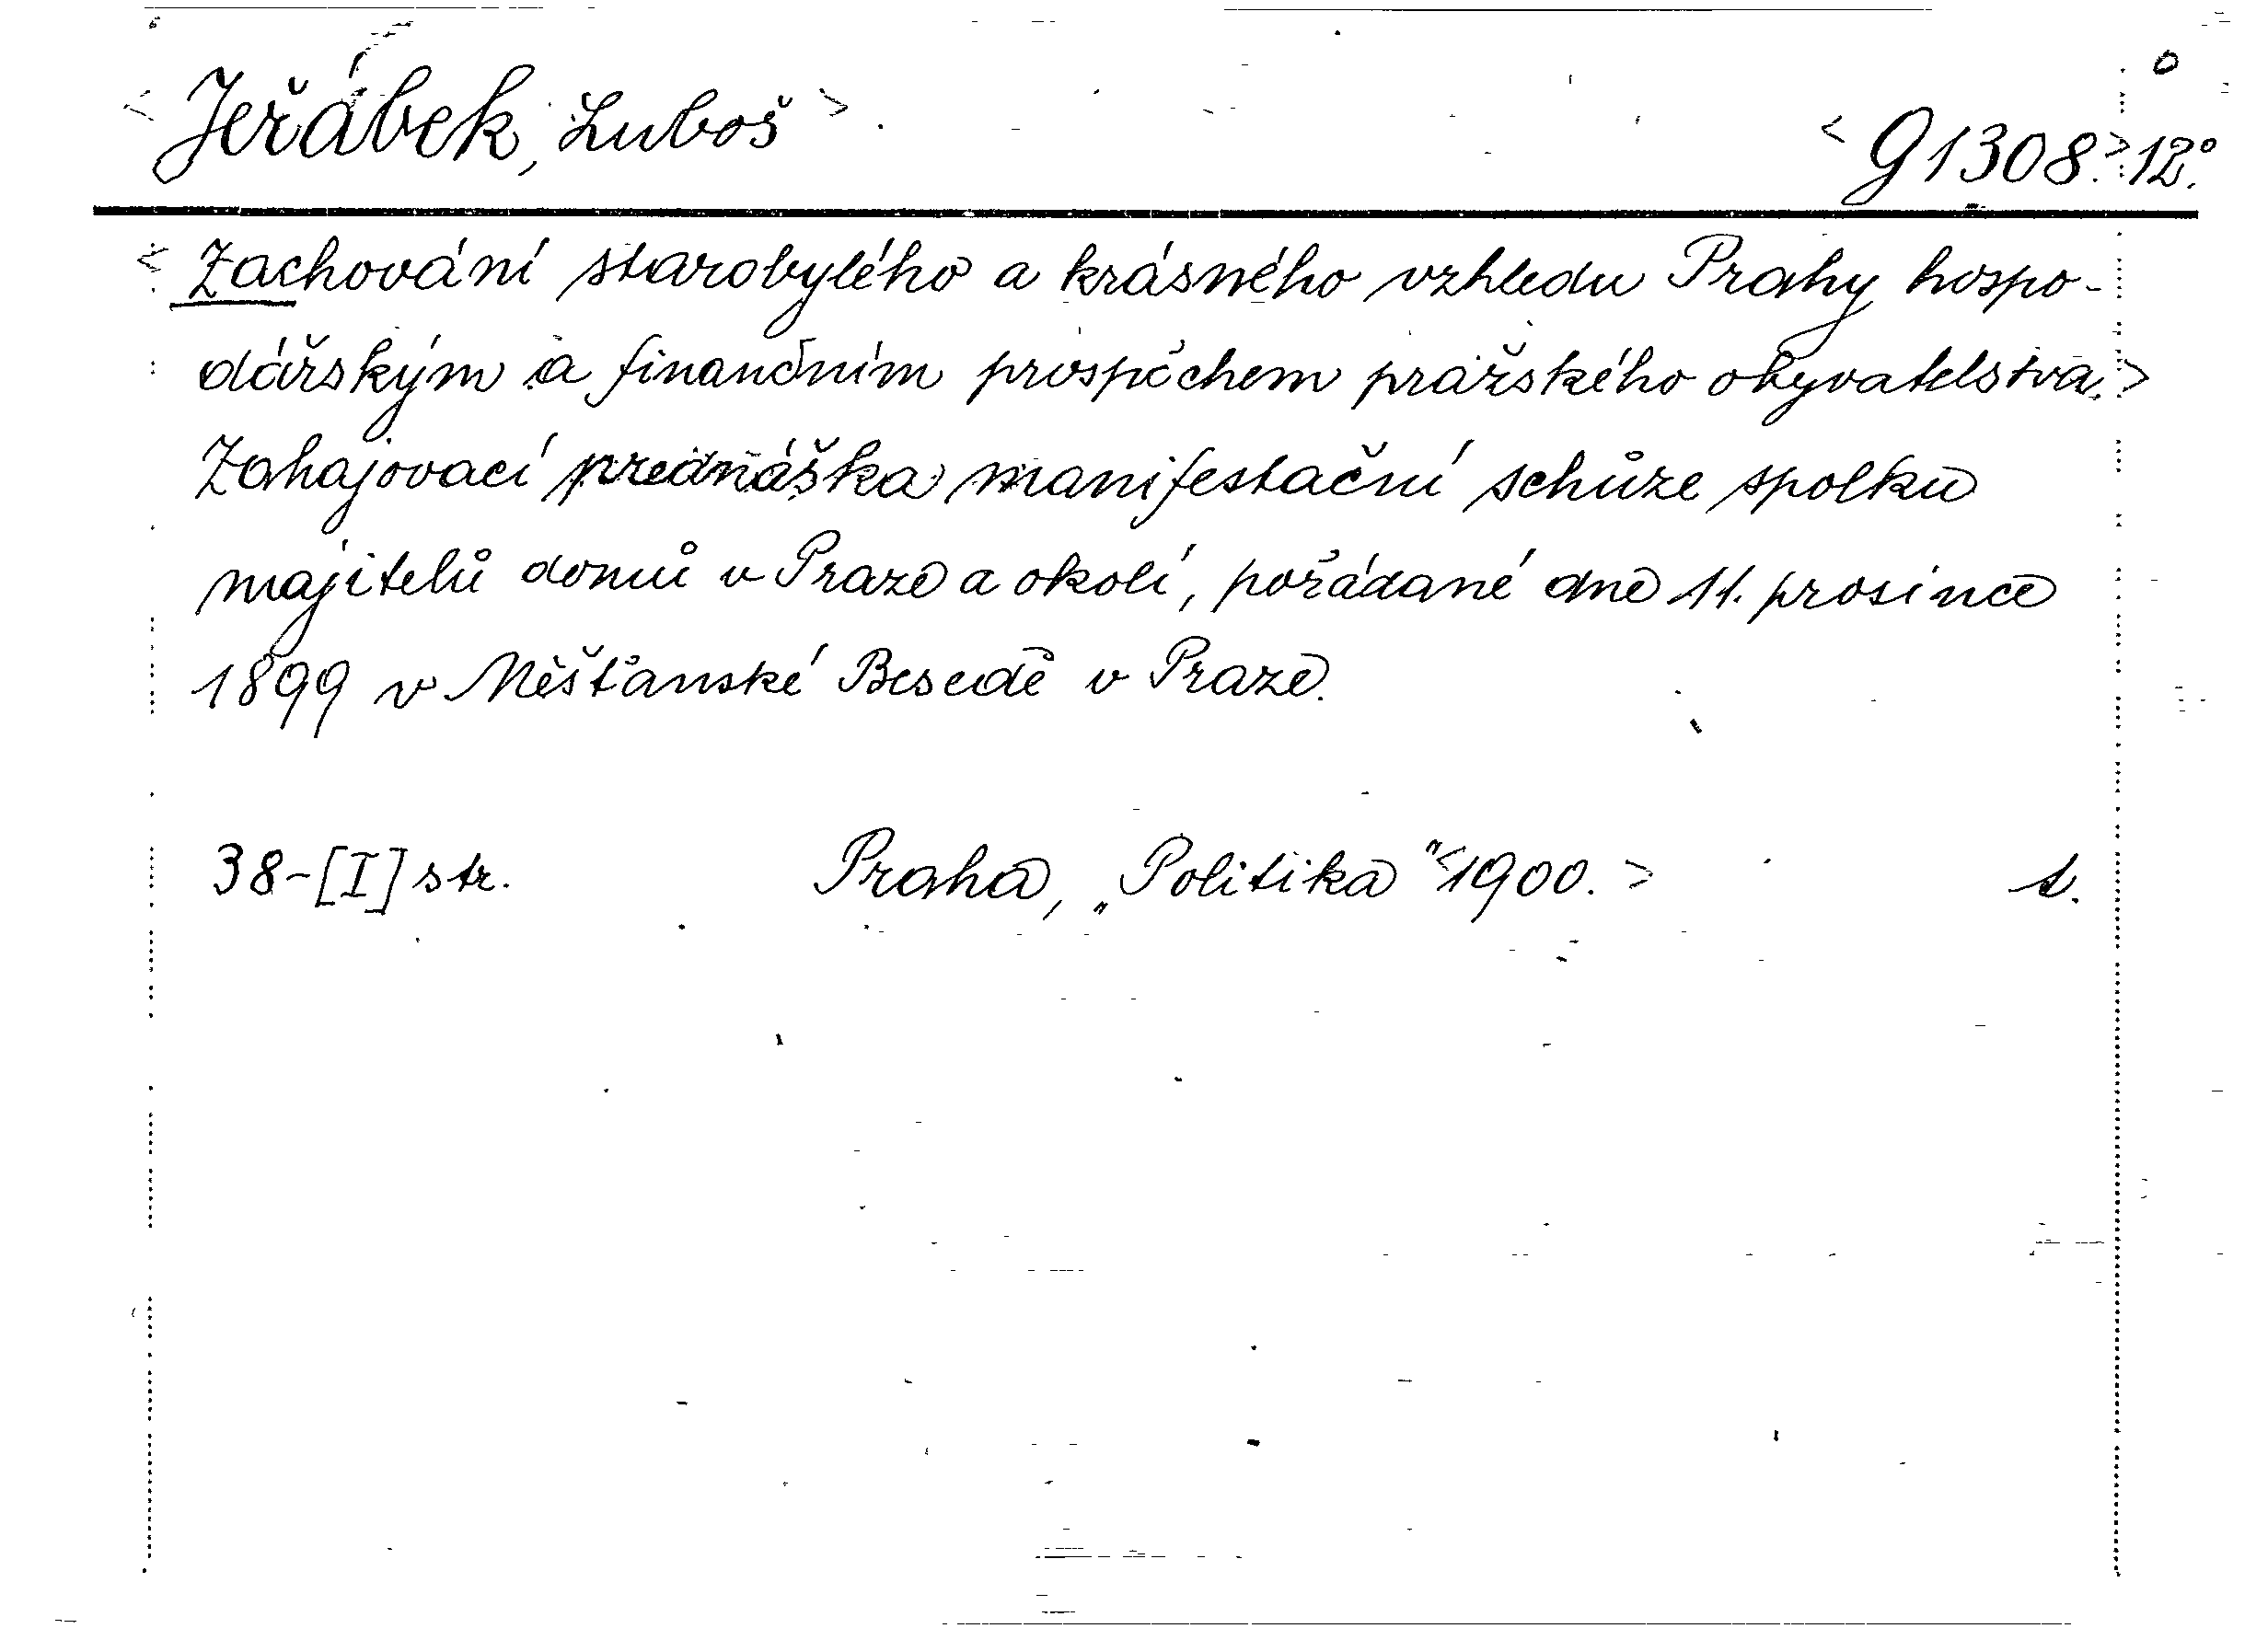 <Jeřábek, Luboš>. <G 1308.> 12°.
<Zachování starobylého a krásného vzhledu Prahy hospo-
dářským a finančním prospěchem pražského obyvatelstva.>
Zahajovací přednáška manifestační schůze spolku
majitelů domů v Praze a okolí, pořádané dne 11. prosince
1899 v Měšťanské Besedě v Praze.
38-[I] str. Praha, „Politika" <1900.> s.